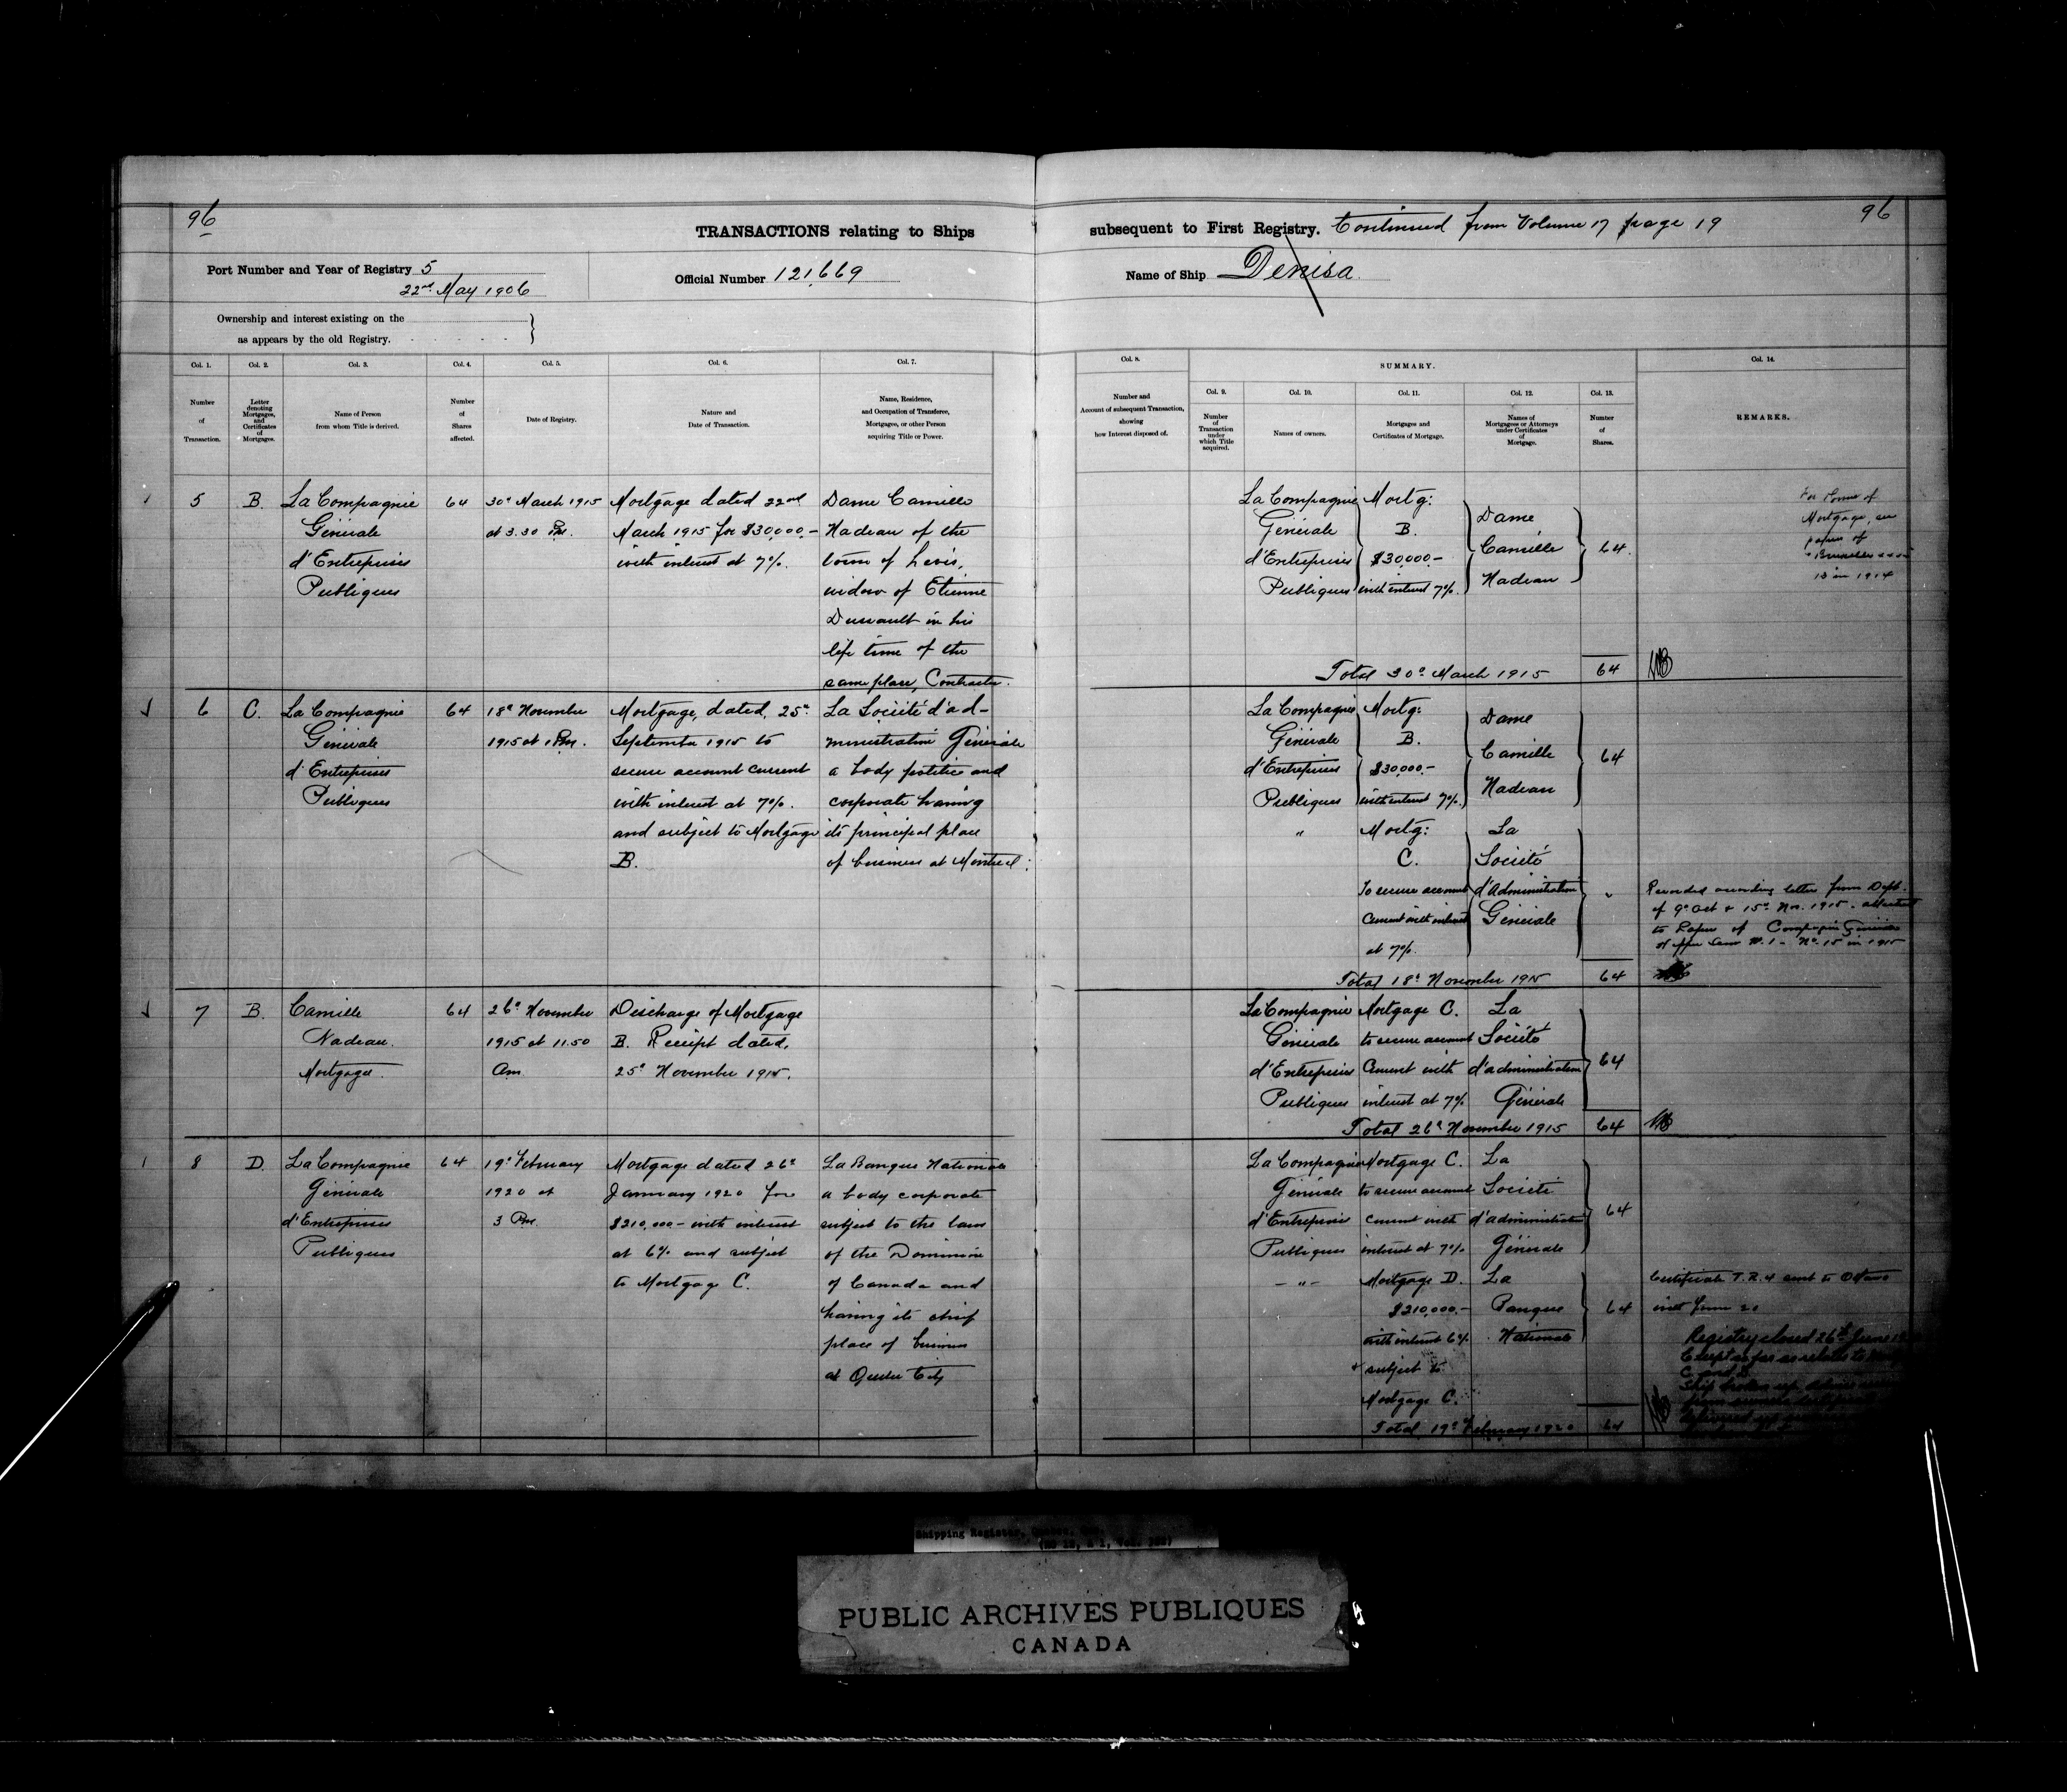 96
TRANSACTIONS relating to Ships
Port Number and Year of Registry 5
22nd May 1906
Official Number 121,669
Ownership and interest existing on the
as appears by the old Registry.
Col. 1.
Number
of
Transaction.
Col. 2.
Letter
denoting
Mortgages,
and
Certificates
of
Mortgages.
Col. 3.
Name of Person
from whom Title is derived.
Col. 4.
Number
of
Shares
affected.
Col. 5.
Date of Registry.
Col. 6.
Nature and
Date of Transaction.
Col. 7.
Name, Residence,
and Occupation of Transferee,
Mortgagee, or other Person
acquiring Title or Power.
5
B.
La Compagnie
Générale
d'Entreprises
Publiques
64
30th March 1915
at 3.30 Pm.
Mortgage dated 22nd
March 1915 for $30,000.-
with interest at 7%.
Dame Camille
Nadeau of the
town of Levis,
widow of Etienne
Dussault in his
life time of the
same place, Contractor.
6
C.
La Compagnie
Générale
d'Entreprises
Publiques
64
18th November
1915 at 1 Pm.
Mortgage, dated, 25th
September 1915 to
secure account current
with interest at 7%.
and subject to Mortgage
B.
La Société d'ad-
ministration Générale
a body politic and
corporate having
its principal place
of business at Montreal:
7
B.
Camille
Nadeau.
Mortgagee.
64
26th November
1915 at 11.50
Am
Discharge of Mortgage
B. Receipt dated,
25th November 1915.
8
D.
La Compagnie
Générale
d'Entreprises
Publiques
64
19th February
1920 at
3 Pm.
Mortgage dated 26th
January 1920 for
$210,000- with interest
at 6% and subject
to Mortgage C.
La Banque Nationale
a body corporate
subject to the laws
of the Dominion
of Canada and
having its chief
place of business
at Quebec City
96
subsequent to First Registry. Continued from Volume 17 page 19
Name of Ship Denisa
Col. 8.
Number and
Account of subsequent Transaction,
showing
how Interest disposed of.
SUMMARY.
Col. 9.
Number
of
Transaction
under
which Title
acquired.
Col. 10.
Names of owners.
Col. 11.
Mortgages and
Certificates of Mortgage.
Col. 12.
Names of
Mortgagees or Attorneys
under Certificates
of
Mortgage.
Col. 13.
Number
of
Shares.
Col. 14.
REMARKS.
La Compagnie
Générale
d'Entreprises
Publiques
Mortg:
B.
$30,000-
with interest 7%.
Dame
Camille
Nadeau
64.
Mortgage, see
papers of
13 in 1914
Total 30th March 1915 64
La Compagnie
Générale
d'Entreprises
Publiques
Mortg:
B.
$30,000.-
with interest 7%.
Dame
Camille
Nadeau
64
"
Mortg:
C.
To secure account
Current with interest
at 7%.
La
Société
d'Administration
Générale
"
Recorded according letter from Dept.
of 9th Oct & 15th Nov. 1915.
to Papers of Compagnie Générale
No. 15 in 1915
Total 18th November 1915 64
La Compagnie
Générale
d'Entreprises
Publiques
Mortgage C.
to secure account
Current with
interest at 7%
La
Société
d'administration
Générale
64
Total 26th November 1915 64
La Compagnie
Générale
d'Entreprises
Publiques
Mortgage C.
to secure account
current with
interest at 7%
La
Société
d'administration
Générale
64
- " -
Mortgage D.
$210,000.-
with interest 6%
& subject to
Mortgage C.
La
Banque
Nationale
64
Certificate T.R.4 sent to Ottawa
Registry closed 26th June
Except as far as relates to
C. and D.
Total 19th February 1920 64
Shipping Register,
PUBLIC ARCHIVES PUBLIQUES
CANADA